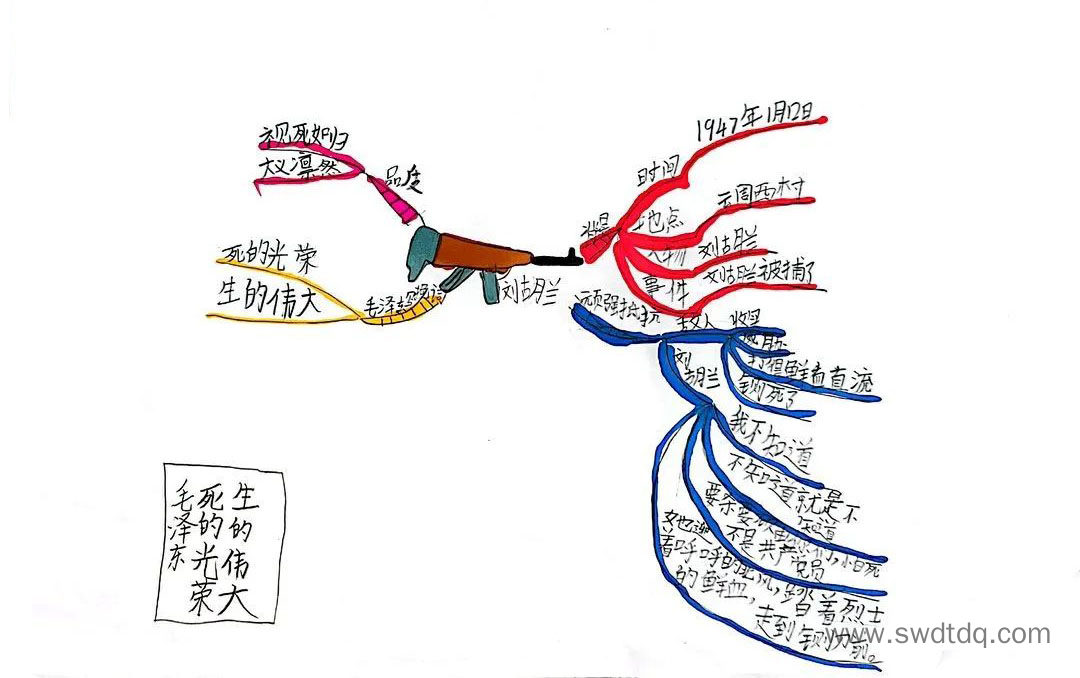 1947年1月12日
时间
云周西村
地点
刘胡兰
人物
刘胡兰被捕了
事件
视死如归
大义凛然
品质
死的光荣
生的伟大
毛泽东
刘胡兰
顽强抵抗
敌人
打得鲜血直流
铡死了
刘
胡兰
我不知道
不知道就是不
知道
不是共产党员
她迎
着呼呼的北风，踏着烈士
的鲜血，走到铡刀前。
生的伟大
死的光荣
毛泽东
www.swdtdq.com